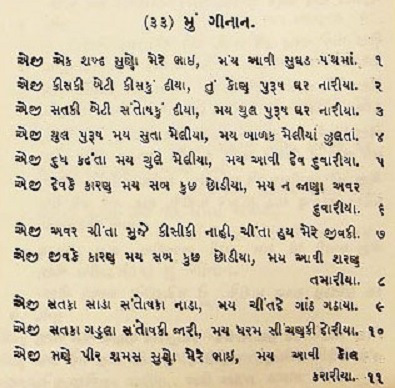 (૩૩) મું ગીનાન.
એજી એક શબ્દ સુણો મેરે ભાઇ, મંય આવી સુઘડ પંથમાં. ૧
એજી કીસકી બેટી કીસકું દીયા, તું કોણ પુરૂષ ઘર નારીયા. ૨
એજી સતકી બેટી સંતોષકું દીયા, મય ચુલ પુરૂષ ઘર નારીયા. ૩
એજી ચુલ પુરૂષ મય સુતા મેલીયા, મય બાળક મેલીયાં ઝુલતાં. ૪
એજી દુધ કઢંતા મય ચુલે મેલીયા, મય આવી દેવ દુવારીયા. ૫
એજી દેવકે કારણ મય સબ કુછ છોડીયા, મય ન જાણા અવર
દુવારીયા. ૬
એજી અવર ચીંતા મુજે કીસીકી નાહી, ચીંતા હુય મેરે જીવકી. ૭
એજી જીવકે કારણ મય સબ કુછ છોડીયા, મય આવી શરણ
તમારીયા. ૮
એજી સતકા સાડા સંતોષકા નાડા, મય ચીંતદે ગાંઠ ગડાયા. ૯
એજી સતકા ગડુલા સંતોષકી જારી, મય ધરમ સીંચણકી દોરીયા. ૧૦
એજી ભણે પીર શમસ સુણો મેરે ભાઇ, મય આવી કોલ
કરારીયા. ૧૧